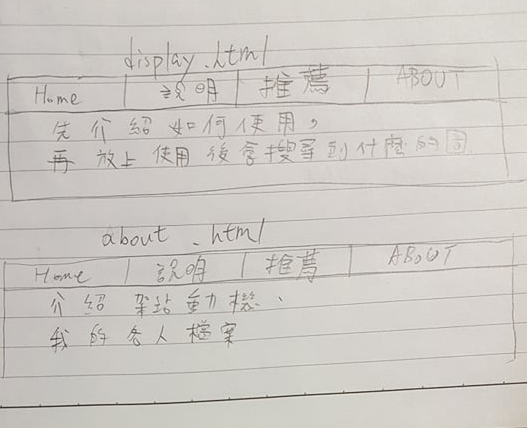 display.html
Home | 說明 | 推薦 | ABOUT
先介紹如何使用，
再放上使用後會搜尋到什麼的圖
about.html
Home | 說明 | 推薦 | ABOUT
介紹架站動機、
我的各人檔案